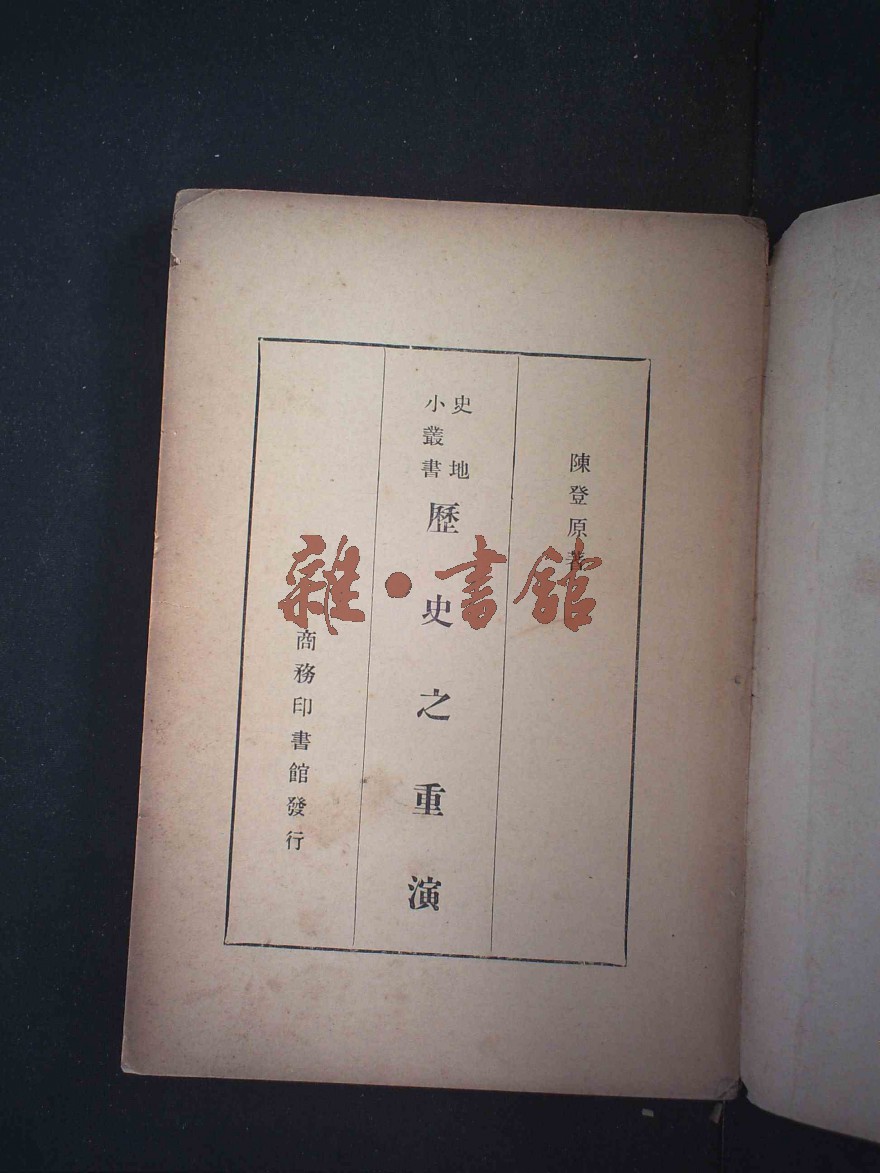 陳登原著
史地
小叢書
歷史之重演
商務印書館發行
雜·書館